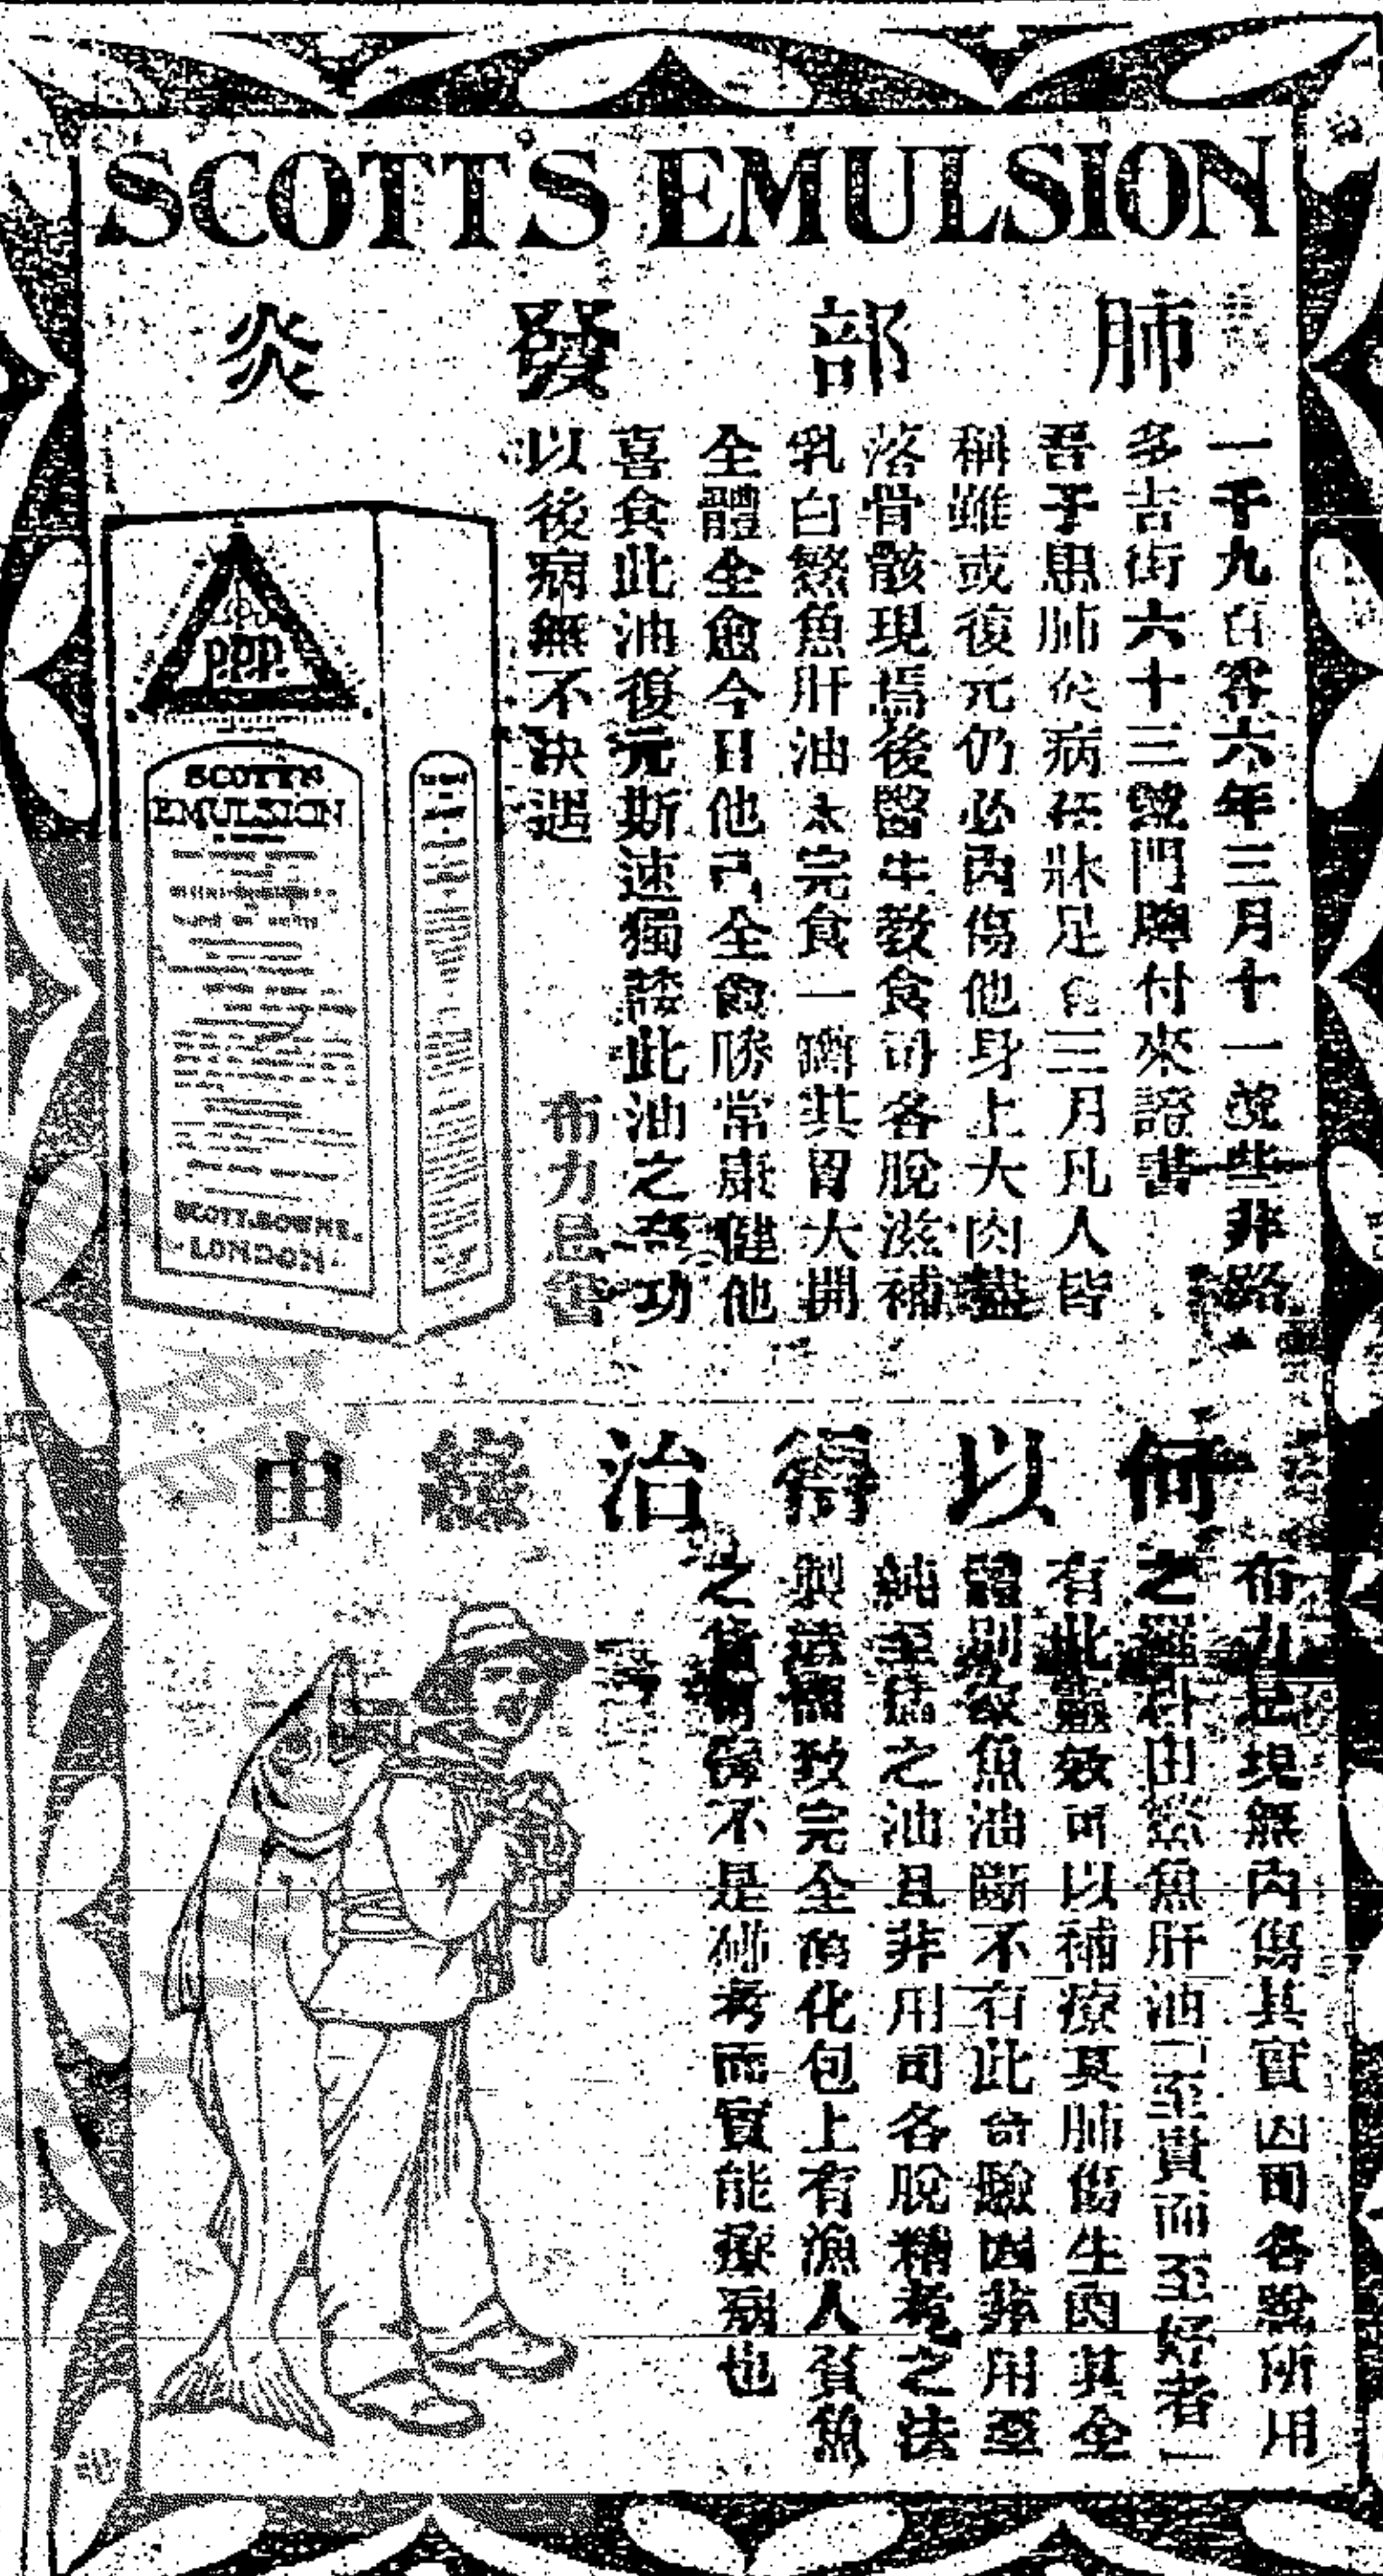 SCOTT'S EMULSION
肺部發炎
一千九百零六年三月十一號些非路
多吉街六十三號門牌付來證書
吾子患肺炎病在牀足食三月凡人皆
稱雖或復元仍必內傷他身上大肉盡
落骨骸現焉後醫生教食司各脫滋補
乳白鰵魚肝油未完食一罇其胃大開
全體全愈今日他已全愈勝常康健他
喜食此油復元斯速獨藉此油之奇功
以後病無不決選
布力
ppp.
SCOTT'S
EMULSION
SCOTT & BOWNE.
LONDON.
何以得治緣由
布力 現無內傷其實因司各脫所用
之 鰵魚肝油 至貴而至好者一
有此靈效可以補療其肺傷生肉其全
體別家魚油斷不有此奇驗因非用至
純至 之油且非用司各脫精考之法
製 致完全 化包上有漁人負魚
之 不是 考而實能療病也